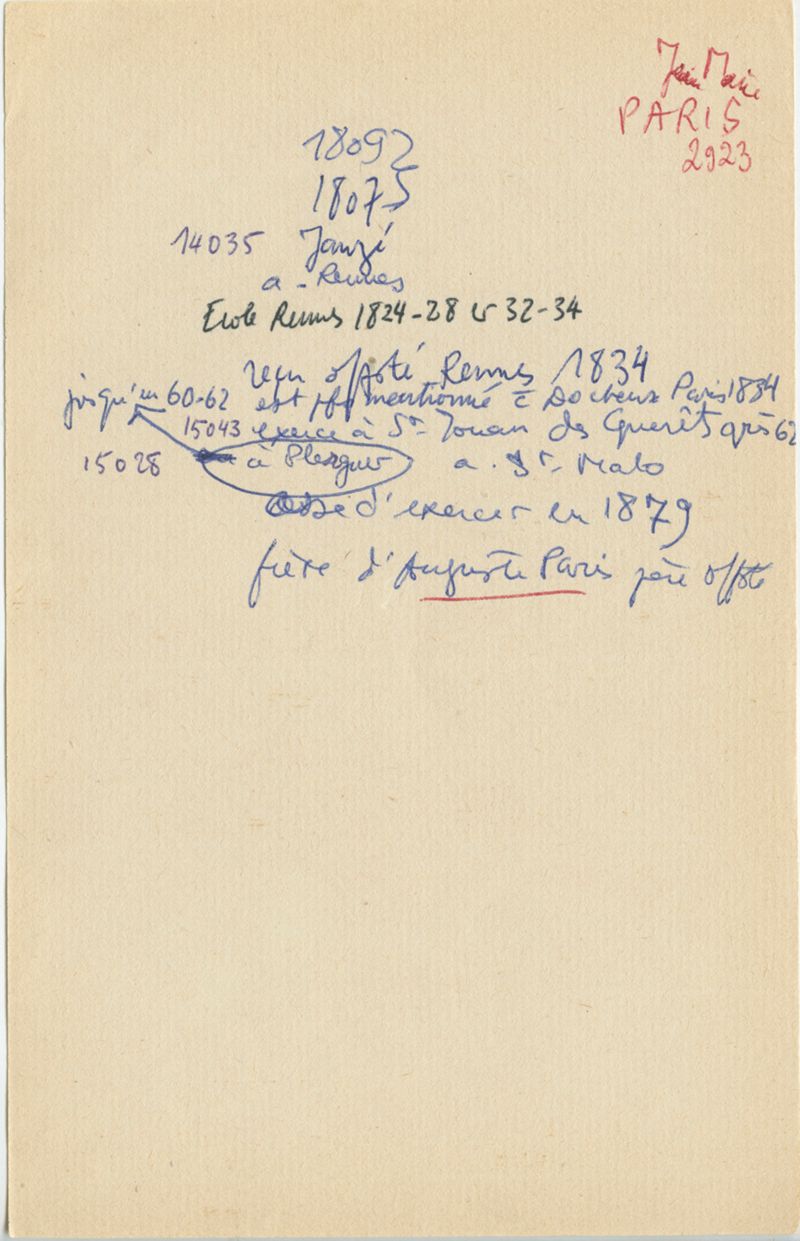 Jean Marie
PARIS
2923
18092
18075
14035 Janzé
a - Rennes
Ecole Rennes 1824-28 & 32-34
reçu offsté Rennes 1834
jusqu'en 60-62 est mentionné Docteur Paris 1834
15043 exerce à St Jouan des Guerêts après 62
15028 à Plerguer a. St-Malo
cesse d'exercer en 1879
frère d'Auguste Paris père offsté